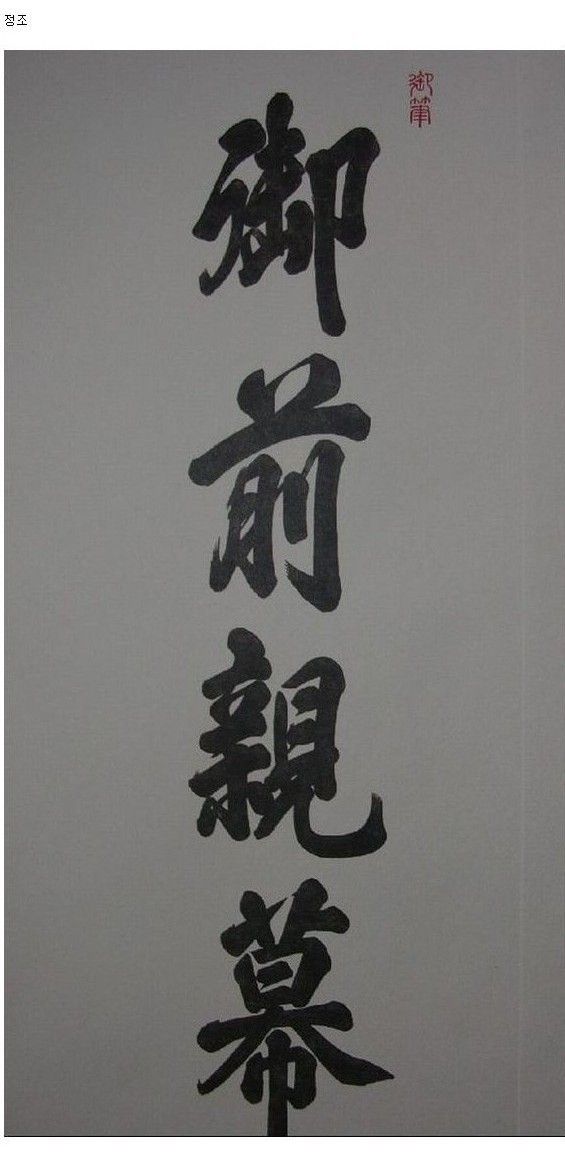 정조
御筆
御前親幕